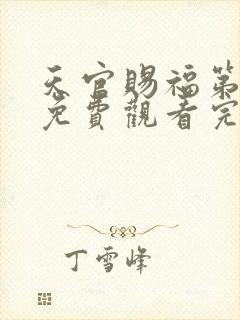 天官賜福第
免費觀看完
丁雪峰